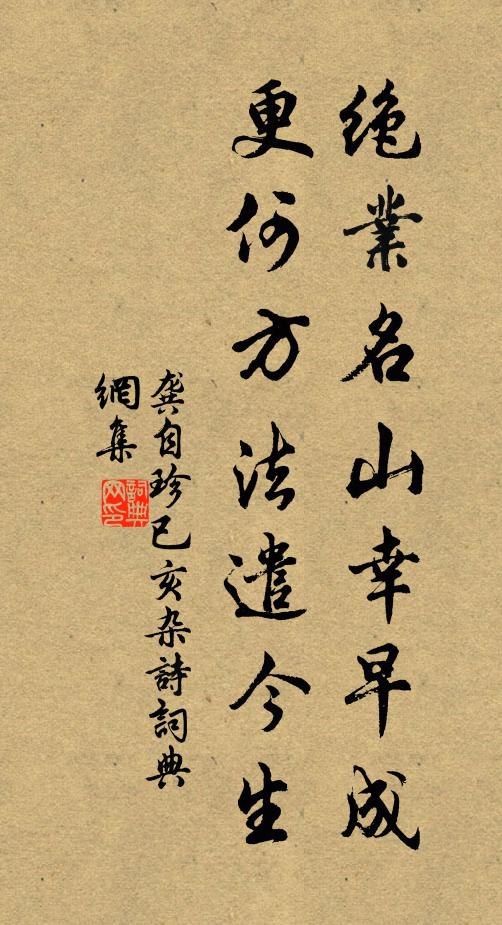 絶業名山幸早成
更何方法遣今生
龔自珍已亥杂詩詞典
網集
詞典
网印